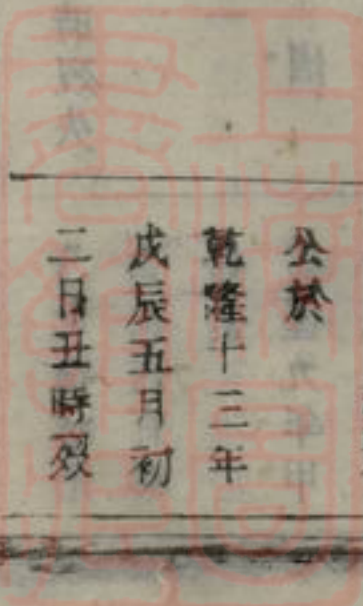 公於
乾隆十三年
戊辰五月初
二日丑時歿